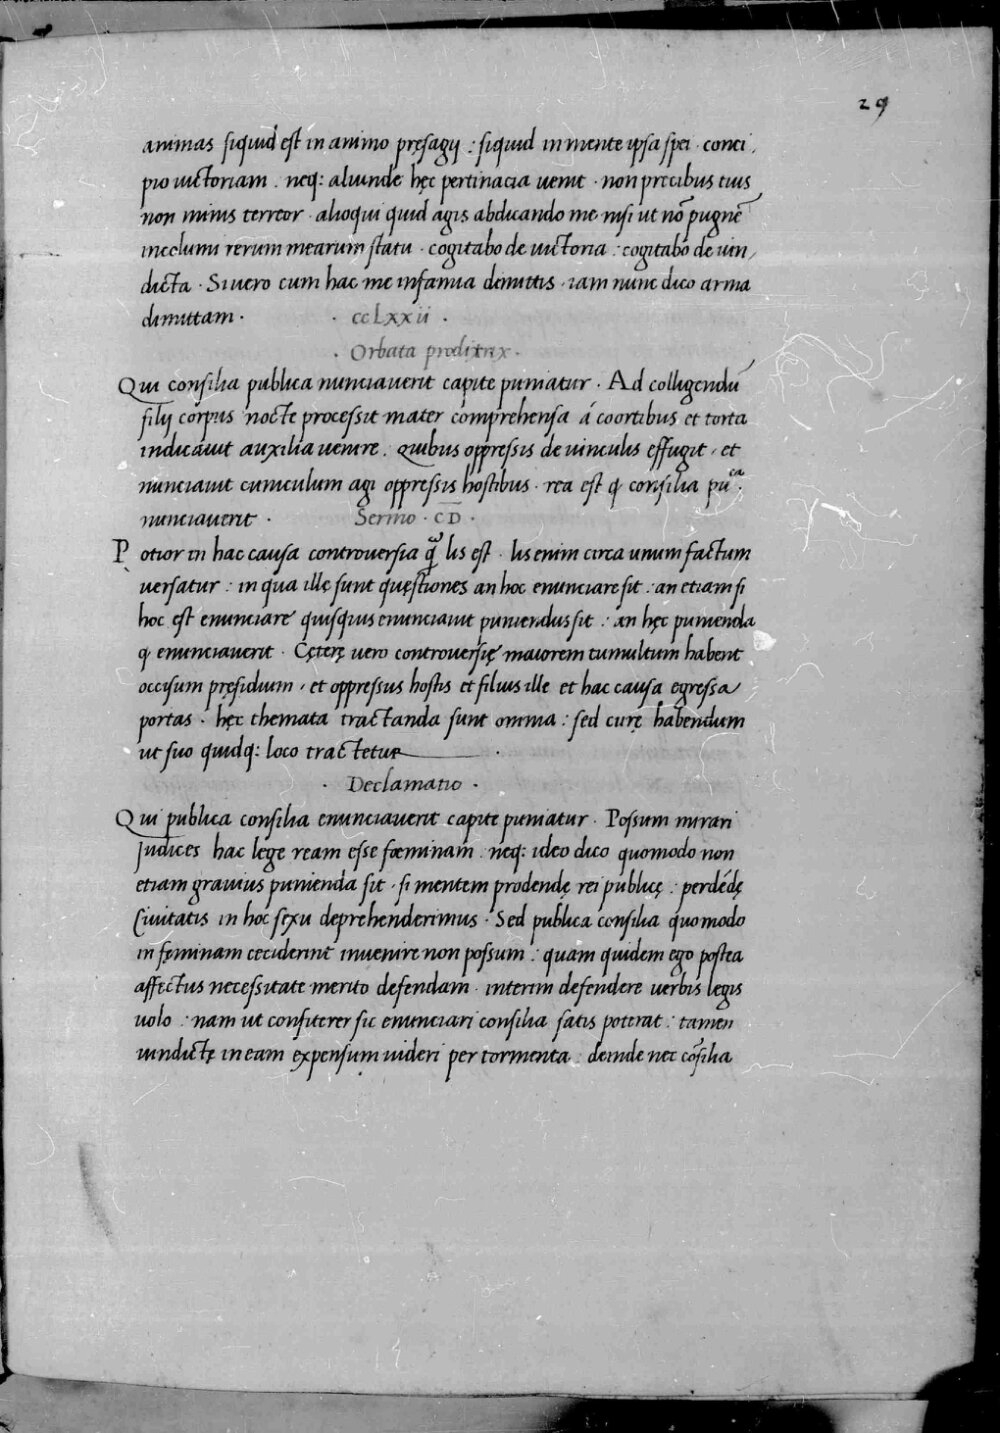 29
animas siquid est in animo pręsagij : siquid in mente ipsa spei · conci,
pio uictoriam . neq: aliunde hęc pertinacia uenit · non precibus tuis
non minis terreor · alioqui quid agis abdicando me nisi ut nō pugnē
incolumi rerum mearum statu · cogitabo de uictoria : cogitabo de uin,
dicta · Si uero cum hac me infamia demittis · iam nunc dico arma
dimittam · · ccLxxii ·
· Orbata proditrix ·
Qui consilia publica nunciauerit capite puniatur · Ad colligendū
filij corpus nocte processit mater comprehensa á coortibus et torta
indicauit auxilia uenire . Quibus oppressis de uinculis effugit · et
nunciauit cuniculum agi oppressis hostibus · rea est q̨ consilia puᶜᵃ·
nunciauerit · Sermo · C̅D̅ ·
Potior in hac causa controuersia q̃ lis est · lis enim circa unum factum
uersatur : in qua illę sunt quęstiones an hoc enunciare sit : an etiam si
hoc est enunciare quisquis enunciauit puniendus sit : an hęc punienda
q̨ enunciauerit · Cęterę uero controuersię maiorem tumultum habent
occisum pręsidium , et oppressus hostis et filius ille et hac causa egressa
portas · hęc themata tractanda sunt omnia : sed curę habendum
ut suo quidq: loco tractetur ·
· Declamatio ·
Qui publica consilia enunciauerit capite puniatur · Possum mirari
Judices hac lege ream esse fœminam . neq: ideo dico quomodo non
etiam grauius punienda sit · si mentem prodendę rei publicę : perdēdę
Ciuitatis in hoc sexu deprehenderimus · Sed publica consilia quomodo
in fęminam ceciderint inuenire non possum : quam quidem ego postea
affectus necessitate merito defendam · interim defendere uerbis legis
uolo : nam ut confiterer sic enunciari consilia satis poterat : tamen
uindictę in eam expensum uideri per tormenta : deinde nec cōsilia